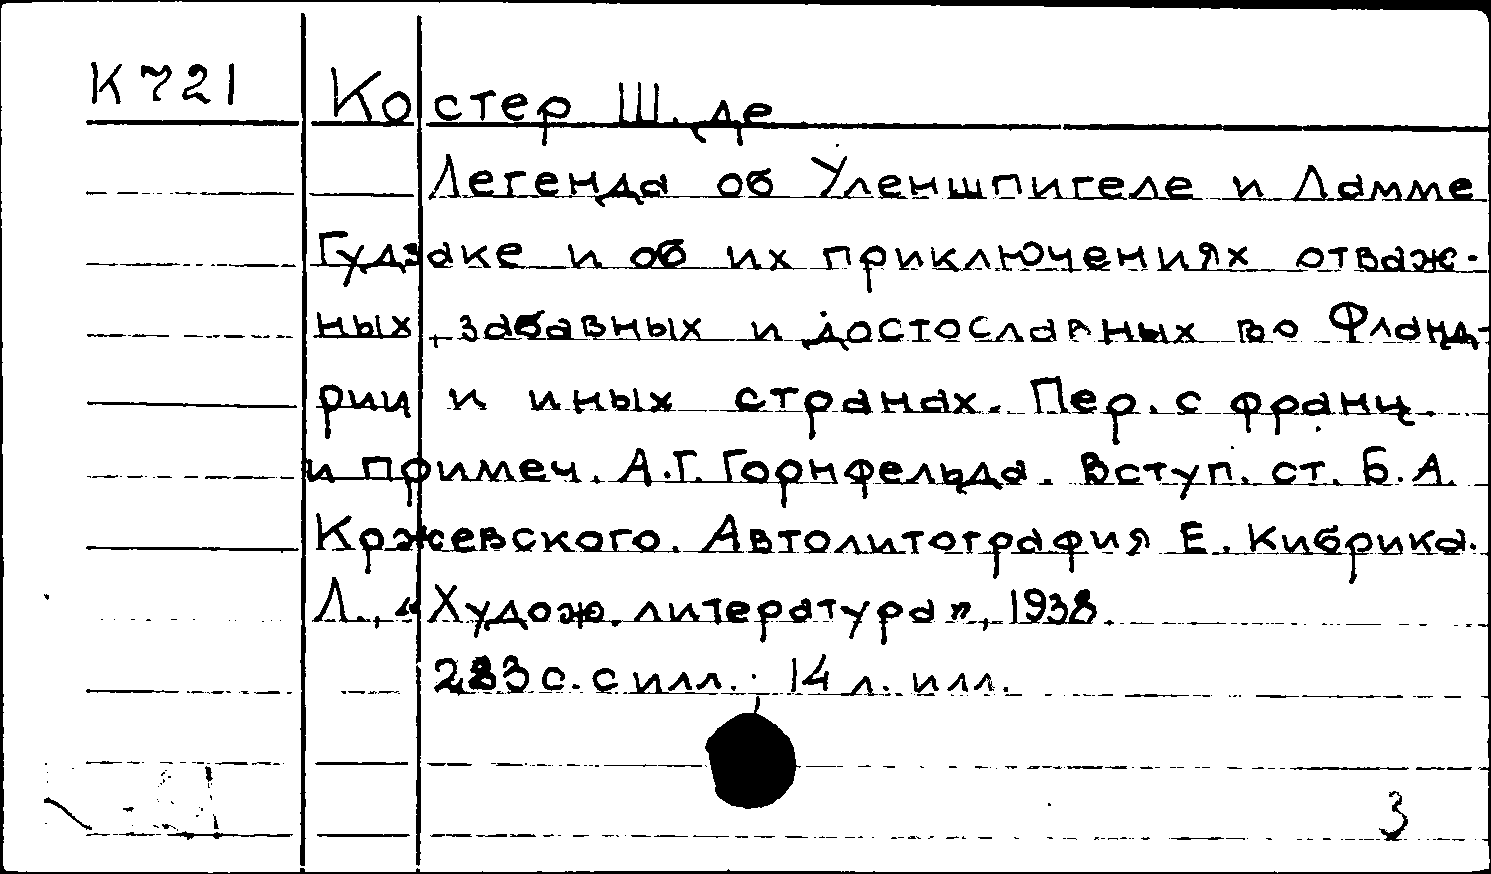 К 721
Костер Ш. де
Легенда об Уленшпигеле и Ламме
Гудзаке и об их приключениях отваж-
ных, забавных и достославных во Фланд-
рии и иных странах. Пер. с франц.
и примеч. А.Г. Горнфельда. Вступ. ст. Б.А.
Кржевского. Автолитография Е. Кибрика.
Л., "Худож. литература", 1938.
283 с. с илл. 14 л. илл.
3